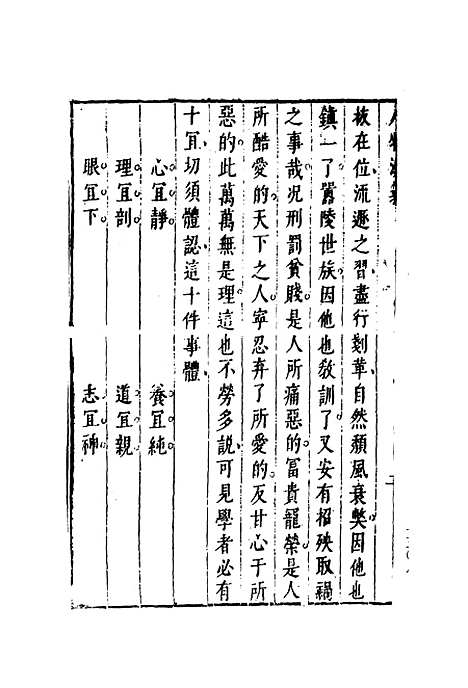 核在位流遯之習盡行剗革自然頽風衰獘因他也
鎮一了嚣陵世族因他也敎訓了又安有招殃取禍
之事哉况刑罰貧賤是人所痛惡的冨貴寵榮是人
所酷愛的天下之人寧忍弃了所愛的反甘心于所
惡的此萬萬無是理這也不勞多説可見學者必有
十冝切須體認這十件事體
心冝靜　養冝純
理冝剖　道冝親
眼冝下　志冝神